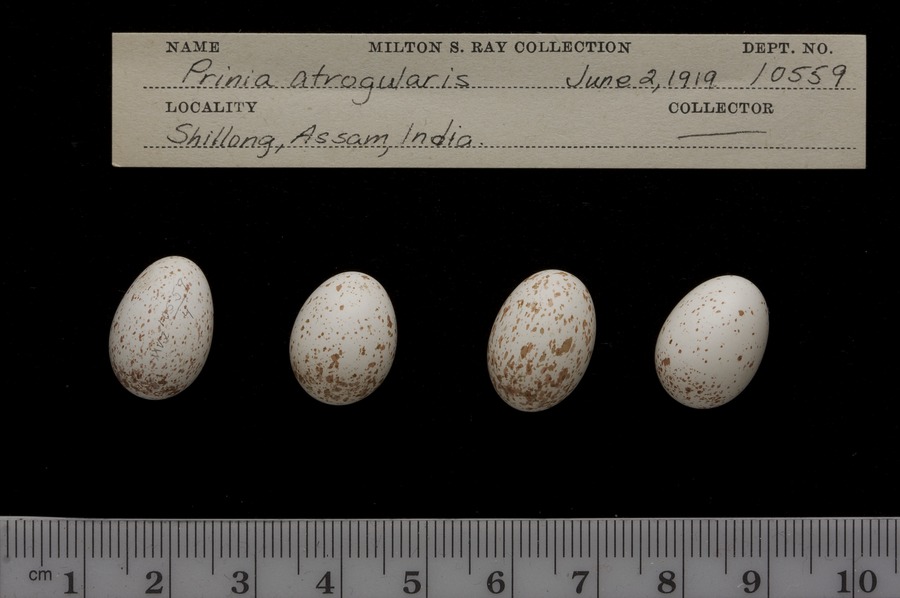 NAME MILTON S. RAY COLLECTION DEPT. NO.
Prinia atrogularis June 2, 1919 10559
LOCALITY COLLECTOR
Shillong, Assam, India.
cm 1 2 3 4 5 6 7 8 9 10